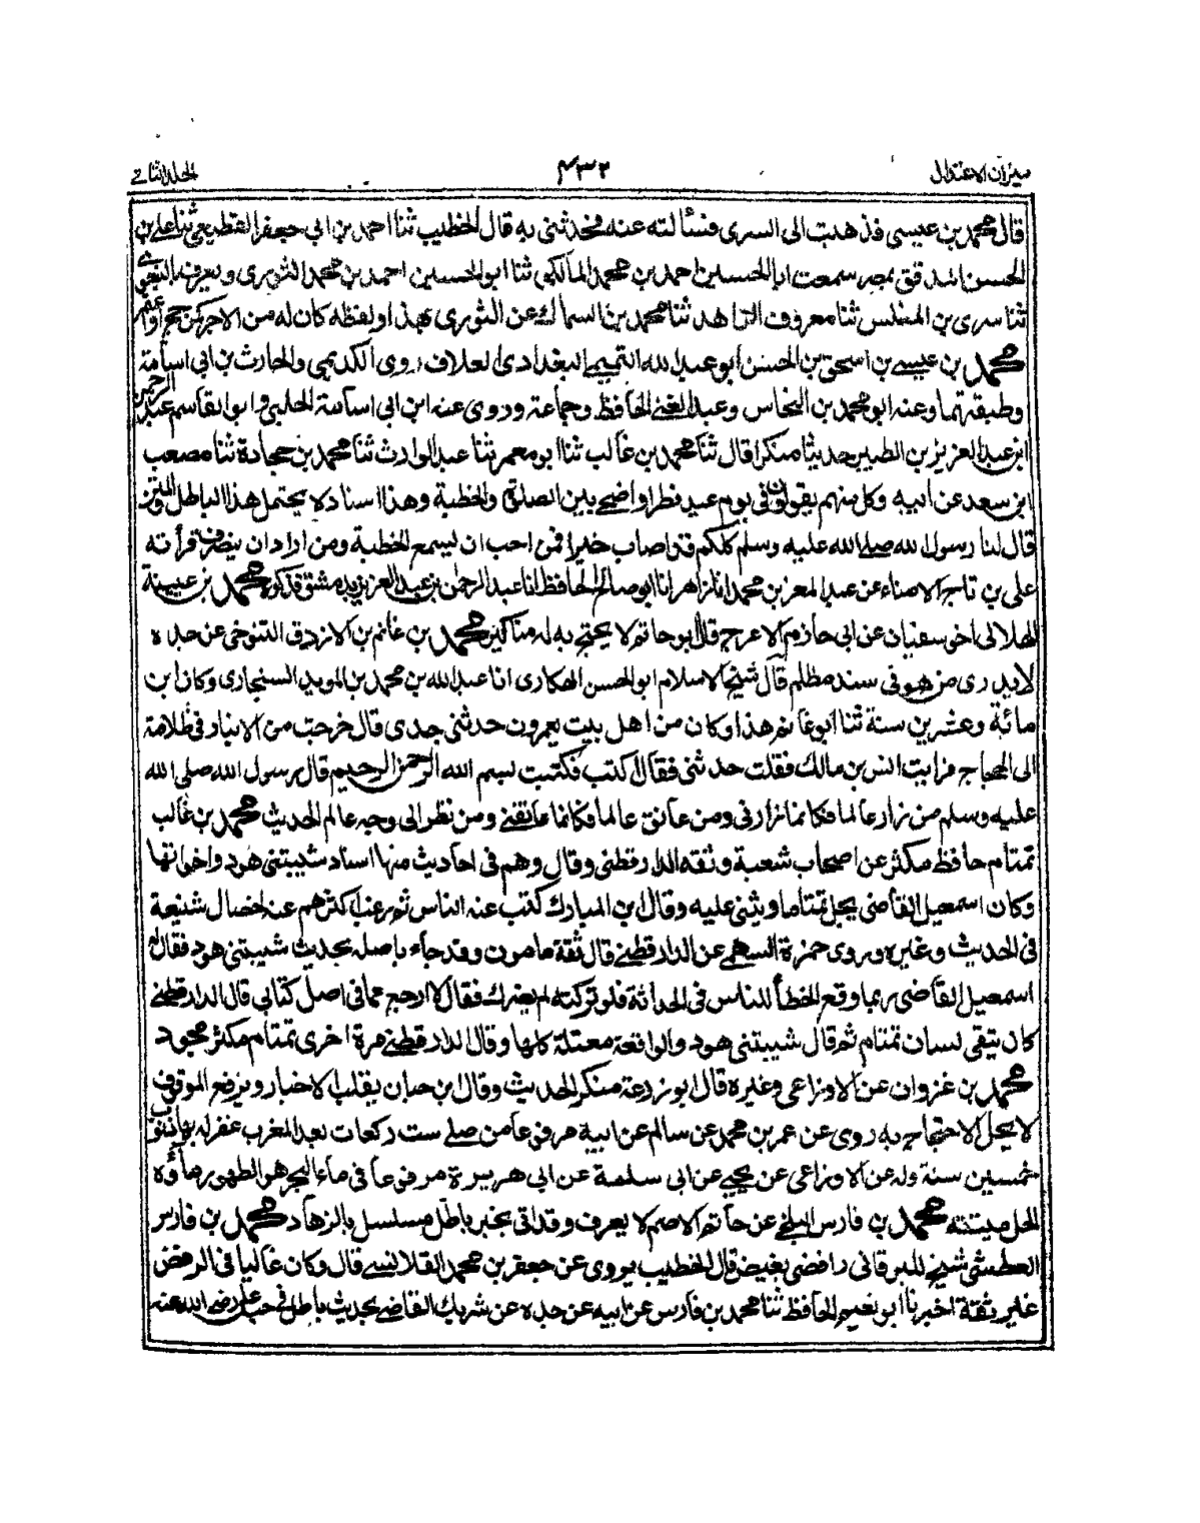 ميزان الاعتدال ٤٣٢ الجلد الثاني
قال محمد بن عيسى فذهبت الى السرى فسألته عنه فحدثنى به قال الخطيب ثنا احمد بن ابى جعفر القطيعي ثنا على بن
الحسن بمصر سمعت ابا الحسين احمد بن محمد المالكى ثنا ابو الحسين احمد بن محمد الثورى ويعرف
ثنا سرى بن المغلس ثنا معروف الزاهد ثنا محمد بن السماك عن الثورى بهذا ولفظه كان له من الاجر كمن حج او اعتمر
محمد بن عيسى بن اسحق بن الحسن ابو عبد الله التميمى البغدادى العلاف روى الكديمى والحارث بن ابى اسامة
وطبقتهما وعنه ابو محمد بن النحاس وعبد الغنى الحافظ وجماعة وروى عنه ابن ابى اسامة الحلبى وابو القاسم عبد الرحمن
ابن عبد العزيز بن الطبيز حديثا منكرا قال ثنا محمد بن غالب ثنا ابو معمر ثنا عبد الوارث ثنا محمد بن حجادة ثنا مصعب
ابن سعد عن ابيه وكل منهم يقول فى يوم عيد فطر او اضحى بين الصلوة والخطبة وهذا اسناد لا يحتمل هذا الباطل
قال لنا رسول الله صلى الله عليه وسلم كلكم قد اصاب خيرا فمن احب ان يسمع الخطبة ومن اراد ان ينصرف قرأته
على بن تاج الامناء عن عبد المعز بن محمد انا زاهر انا ابو صالح الحافظ انا عبد الرحمن بن عبد العزيز بدمشق فذكره محمد بن عيينة
الهلالى اخو سفيان عن ابى حازم الاعرج قال ابو حاتم لا يحتج به له مناكير محمد بن غانم بن الازرق التنوخى عن جده
لا يدرى من هو فى سند مظلم قال شيخ الاسلام ابو الحسن الهكارى انا عبد الله بن محمد بن المويد السنجارى وكان ابن
مائة وعشرين سنة ثنا ابو غانم هذا وكان من اهل بيت يعمرون حدثنى جدى قال خرجت من الانبار فى ظلامة
الى الحجاج فرايت انس بن مالك فقلت حدثنى فقال اكتب فكتبت بسم الله الرحمن الرحيم قال رسول الله صلى الله
عليه وسلم من زار عالما فكانما زارنى ومن عانق عالما فكانما عانقنى ومن نظر الى وجه عالم الحديث محمد بن غالب
تمتام حافظ مكثر عن اصحاب شعبة وثقه الدارقطنى وقال وهم فى احاديث منها اسناد شيبتنى هود واخواتها
وكان اسمعيل القاضى يجل تمتاما ويثنى عليه وقال ابن المبارك كتب عنه الناس ثم رغب اكثرهم عنه لخصال شنيعة
فى الحديث وغيره وروى حمزة السهمى عن الدارقطنى قال ثقة مامون وقد جاء باصله بحديث شيبتنى هود فقال له
اسمعيل القاضى ربما وقع الخطأ للناس فى الحداثة فلو تركته لم يضرك فقال لا ارجع عما فى اصل كتابى قال الدارقطنى
كان يتقى لسان تمتام ثم قال شيبتنى هود والواقعة معتلة كلها وقال الدارقطنى مرة اخرى تمتام مكثر مجود
محمد بن غزوان عن الاوزاعى وغيره قال ابو زرعة منكر الحديث وقال ابن حبان يقلب الاخبار ويرفع الموقوف
لا يحل الاحتجاج به روى عن عمر بن محمد عن سالم عن ابيه مرفوعا من صلى ست ركعات بعد المغرب غفر له بها ذنوب
خمسين سنة وله عن الاوزاعى عن يحيى عن ابى سلمة عن ابى هريرة مرفوعا فى ماء البحر هو الطهور ماؤه
الحل ميتته محمد بن فارس البلخى عن حاتم الاصم لا يعرف وقد اتى بخبر باطل مسلسل بالزهاد محمد بن فارس
العطشى شيخ للبرقانى رافضى بغيض قال الخطيب يروى عن جعفر بن محمد القلانسى قال وكان غاليا فى الرفض
غير ثقة اخبرنا ابو نعيم الحافظ ثنا محمد بن فارس عن ابيه عن جده عن شريك القاضى بحديث باطل فى حب على رضى الله عنه